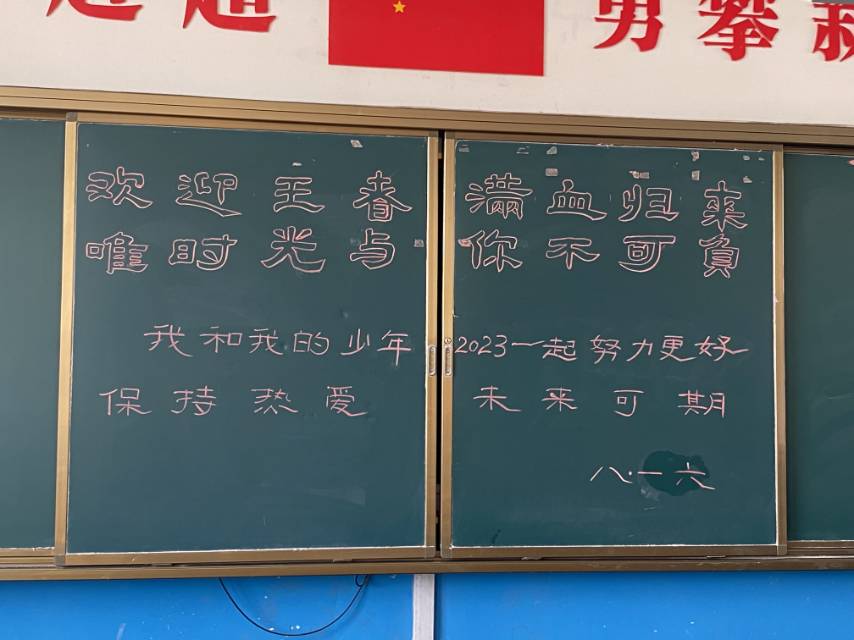 超 勇攀
欢迎王者 满血归來
唯时光与 你不可負
我和我的少年 2023一起努力更好
保持热爱 未来可期
八·一六